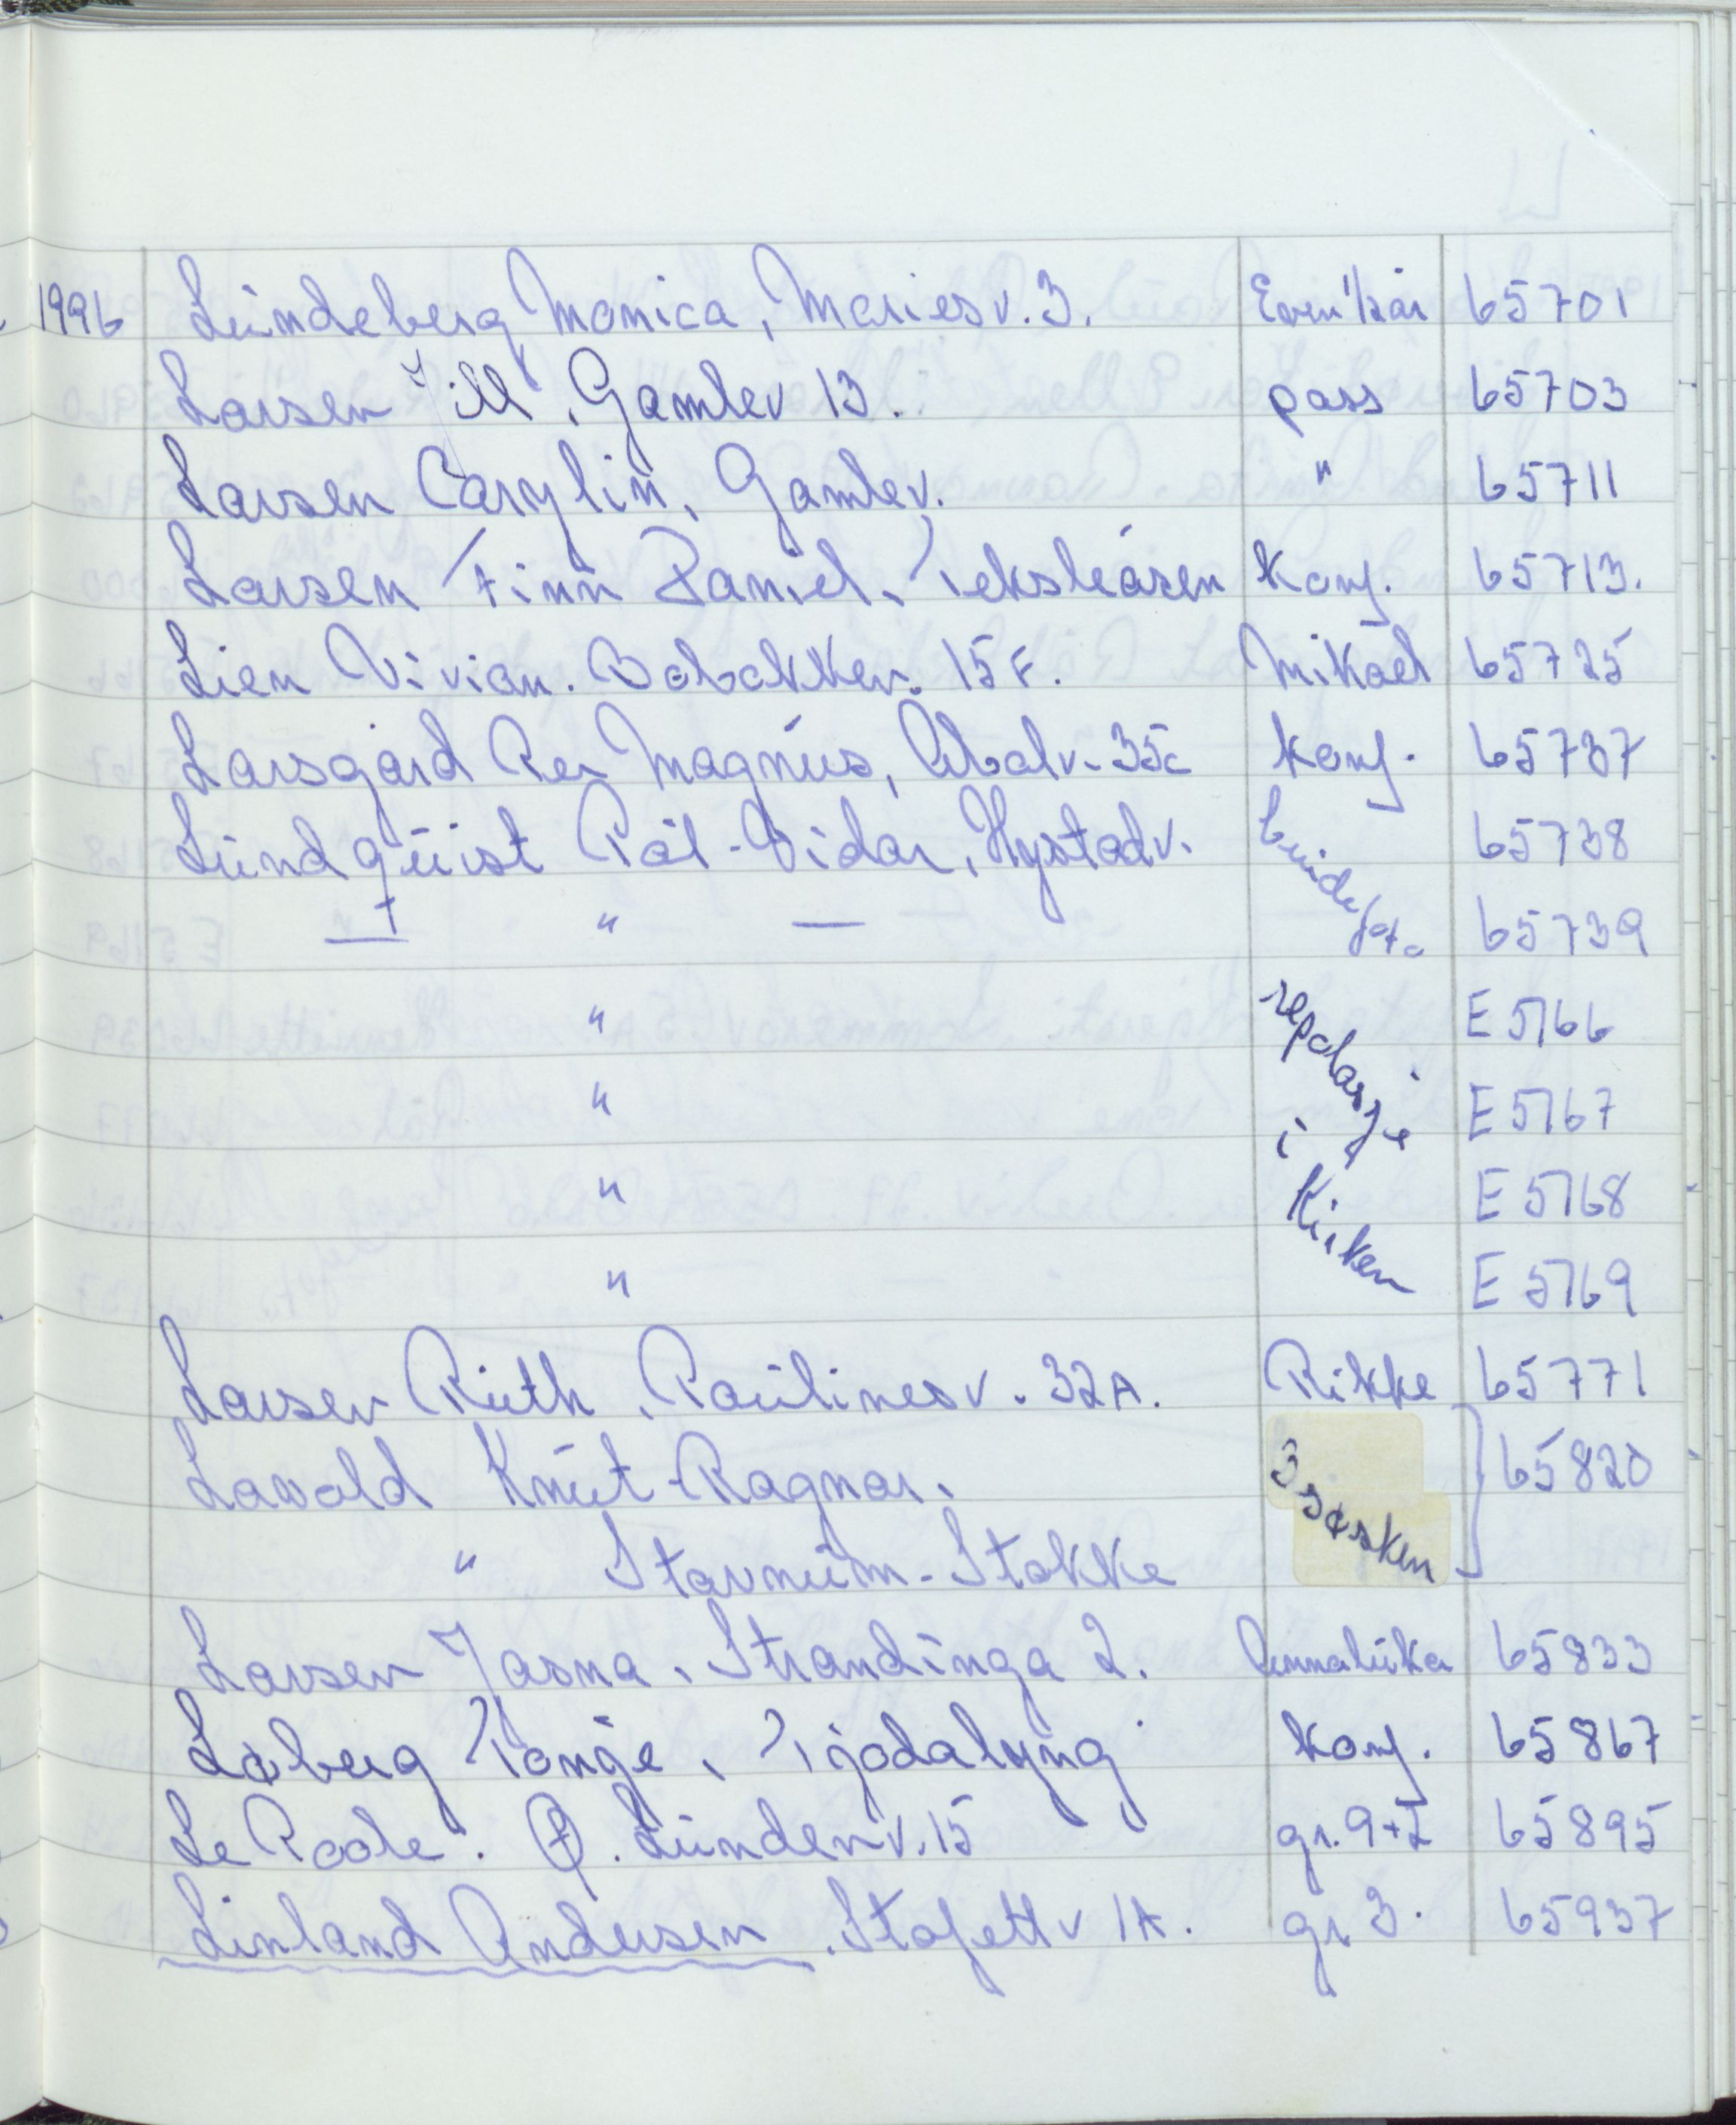 1996 Lundeberg Monica, Mariesv. 3. 65701
Larsen Jill, Gamlev 13. pass 65703
Larsen Carylin, Gamlev. " 65711
Larsen Finn Daniel, Teksleåsen Konf. 65713.
Lien Vivian. Babakkev. 15 F. Mikael 65725
Larsgård Per Magnus, 35c konf. 65737
Lundquist Pål-Vidar, Hystadv. brudefoto 65738
— " — 65739
" repotasje E 5766
" i E 5767
" Kirken E 5768
" E 5769
Larsen Ruth, Paulinesv. 32A. Rikke 65771
Lavold Knut-Ragnar. 3 søsken 65820
" Stavnum-Stokke
Larsen Jasna, Strandinga 2. 65833
Løberg Tonje, Tjodalyng konf. 65867
Le Poole. Ø. Lundenv. 15 gr. 9+2 65895
Linland Andersen. Stafettv 1A. gr 3. 65937